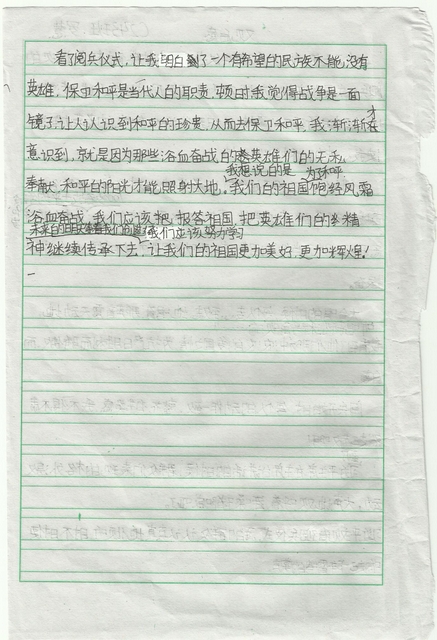 看了阅兵仪式，让我明白到了一个有希望的民族不能没有
英雄，保卫和平是当代人的职责，顿时我觉得战争是一面
镜子让人认识到和平的珍贵，从而去保卫和平，我渐渐才在
意识到，就是因为那些浴血奋战的英雄们的无私
我想说的是 为和平
奉献，和平的阳光才能照射大地，我们的祖国饱经风霜
浴血奋战，我们应该把，报答祖国，把英雄们的精
未来的明天 我们 我们应该努力学习
神继续传承下去，让我们的祖国更加美好，更加辉煌！